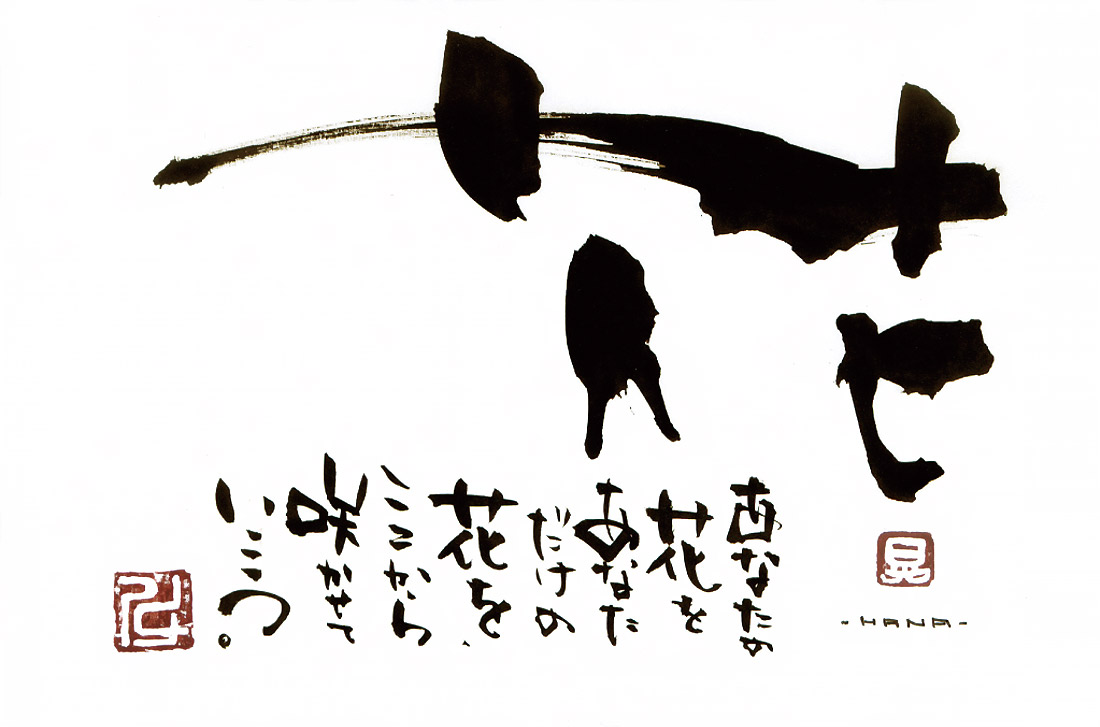 花
晃
-HANA-
あなたの
花を
あなた
だけの
花を、
ここから
咲かせて
いこう。